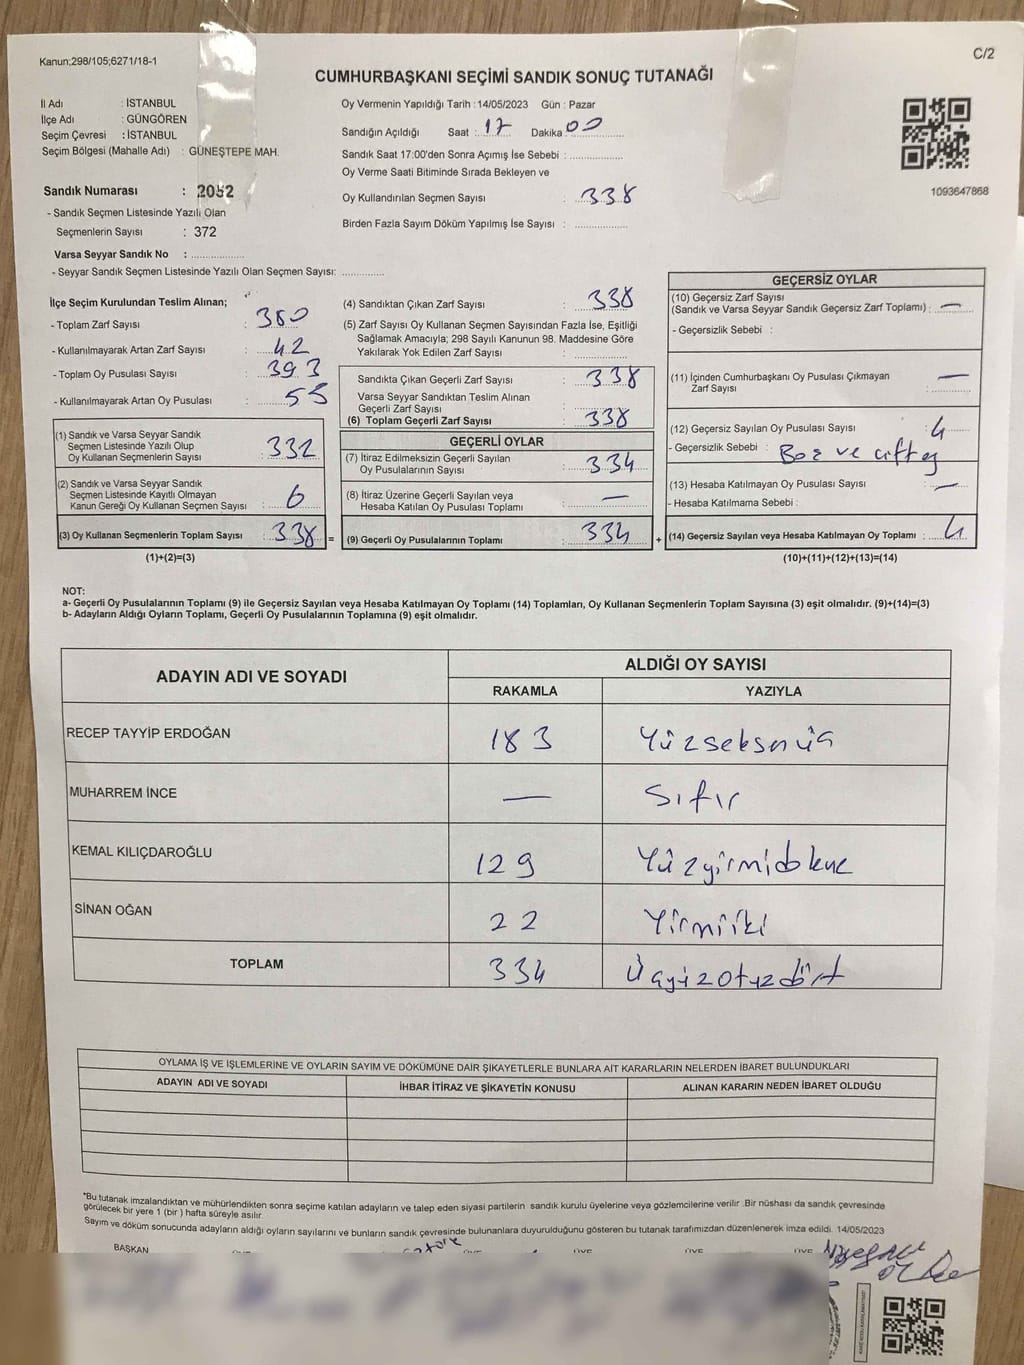 Kanun;298/105;6271/18-1
C/2
CUMHURBAŞKANI SEÇİMİ SANDIK SONUÇ TUTANAĞI
İl Adı : İSTANBUL
İlçe Adı : GÜNGÖREN
Seçim Çevresi : İSTANBUL
Seçim Bölgesi (Mahalle Adı) : GÜNEŞTEPE MAH.
Oy Vermenin Yapıldığı Tarih :14/05/2023 Gün : Pazar
Sandığın Açıldığı Saat : 17 Dakika 00
Sandık Saat 17:00'den Sonra Açımış İse Sebebi :
Oy Verme Saati Bitiminde Sırada Bekleyen ve
Oy Kullandırılan Seçmen Sayısı : 338
Birden Fazla Sayım Döküm Yapılmış İse Sayısı :
1093647868
Sandık Numarası : 2052
- Sandık Seçmen Listesinde Yazılı Olan
Seçmenlerin Sayısı : 372
Varsa Seyyar Sandık No :
- Seyyar Sandık Seçmen Listesinde Yazılı Olan Seçmen Sayısı:
İlçe Seçim Kurulundan Teslim Alınan;
- Toplam Zarf Sayısı : 380
- Kullanılmayarak Artan Zarf Sayısı : 42
- Toplam Oy Pusulası Sayısı : 393
- Kullanılmayarak Artan Oy Pusulası : 55
(1) Sandık ve Varsa Seyyar Sandık
Seçmen Listesinde Yazılı Olup
Oy Kullanan Seçmenlerin Sayısı : 332
(2) Sandık ve Varsa Seyyar Sandık
Seçmen Listesinde Kayıtlı Olmayan
Kanun Gereği Oy Kullanan Seçmen Sayısı : 6
(3) Oy Kullanan Seçmenlerin Toplam Sayısı : 338 =
(1)+(2)=(3)
(4) Sandıktan Çıkan Zarf Sayısı : 338
(5) Zarf Sayısı Oy Kullanan Seçmen Sayısından Fazla İse, Eşitliği
Sağlamak Amacıyla; 298 Sayılı Kanunun 98. Maddesine Göre
Yakılarak Yok Edilen Zarf Sayısı :
Sandıkta Çıkan Geçerli Zarf Sayısı : 338
Varsa Seyyar Sandıktan Teslim Alınan
Geçerli Zarf Sayısı :
(6) Toplam Geçerli Zarf Sayısı : 338
GEÇERLİ OYLAR
(7) İtiraz Edilmeksizin Geçerli Sayılan
Oy Pusulalarının Sayısı : 334
(8) İtiraz Üzerine Geçerli Sayılan veya
Hesaba Katılan Oy Pusulası Toplamı : —
(9) Geçerli Oy Pusulalarının Toplamı : 334 +
GEÇERSİZ OYLAR
(10) Geçersiz Zarf Sayısı
(Sandık ve Varsa Seyyar Sandık Geçersiz Zarf Toplamı) : —
- Geçersizlik Sebebi :
(11) İçinden Cumhurbaşkanı Oy Pusulası Çıkmayan —
Zarf Sayısı :
(12) Geçersiz Sayılan Oy Pusulası Sayısı : 4
- Geçersizlik Sebebi : Boş ve çift oy
(13) Hesaba Katılmayan Oy Pusulası Sayısı : —
- Hesaba Katılmama Sebebi :
(14) Geçersiz Sayılan veya Hesaba Katılmayan Oy Toplamı : 4
(10)+(11)+(12)+(13)=(14)
NOT:
a- Geçerli Oy Pusulalarının Toplamı (9) ile Geçersiz Sayılan veya Hesaba Katılmayan Oy Toplamı (14) Toplamları, Oy Kullanan Seçmenlerin Toplam Sayısına (3) eşit olmalıdır. (9)+(14)=(3)
b- Adayların Aldığı Oyların Toplamı, Geçerli Oy Pusulalarının Toplamına (9) eşit olmalıdır.
ADAYIN ADI VE SOYADI
ALDIĞI OY SAYISI
RAKAMLA YAZIYLA
RECEP TAYYİP ERDOĞAN 183 Yüzseksenüç
MUHARREM İNCE — Sıfır
KEMAL KILIÇDAROĞLU 129 Yüzyirmidokuz
SİNAN OĞAN 22 Yirmiiki
TOPLAM 334 Üçyüzotuzdört
OYLAMA İŞ VE İŞLEMLERİNE VE OYLARIN SAYIM VE DÖKÜMÜNE DAİR ŞİKAYETLERLE BUNLARA AİT KARARLARIN NELERDEN İBARET BULUNDUKLARI
ADAYIN ADI VE SOYADI İHBAR İTİRAZ VE ŞİKAYETİN KONUSU ALINAN KARARIN NEDEN İBARET OLDUĞU
*Bu tutanak imzalandıktan ve mühürlendikten sonra seçime katılan adayların ve talep eden siyasi partilerin sandık kurulu üyelerine veya gözlemcilerine verilir .Bir nüshası da sandık çevresinde
görülecek bir yere 1 (bir ) hafta süreyle asılır.
Sayım ve döküm sonucunda adayların aldığı oyların sayılarını ve bunların sandık çevresinde bulunanlara duyurulduğunu gösteren bu tutanak tarafımızdan düzenlenerek imza edildi. 14/05/2023
BAŞKAN